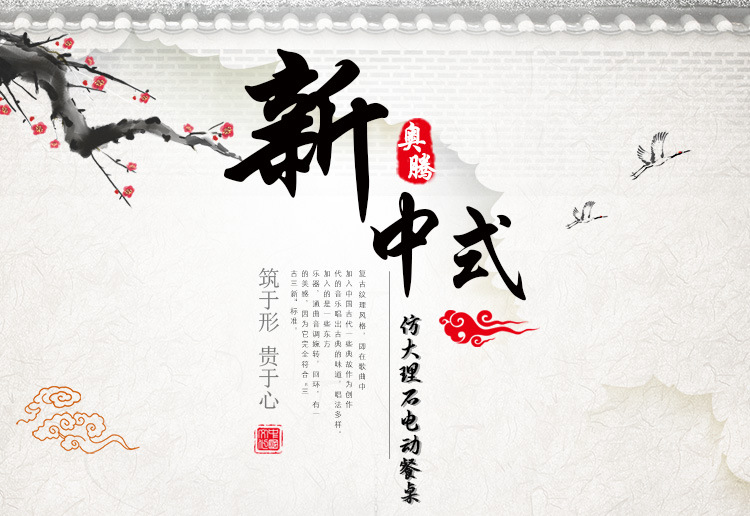 新中式
奥腾
仿大理石电动餐桌
复古纹理风格，即在歌曲中
加入中国古代一些典故作为创作
代的音乐唱出古典的味道，唱法多样，
加入的是一些东方
乐器，通曲音调婉转，回环，有一
的美感，因为它完全符合“三
古三新”标准。
筑于形 贵于心